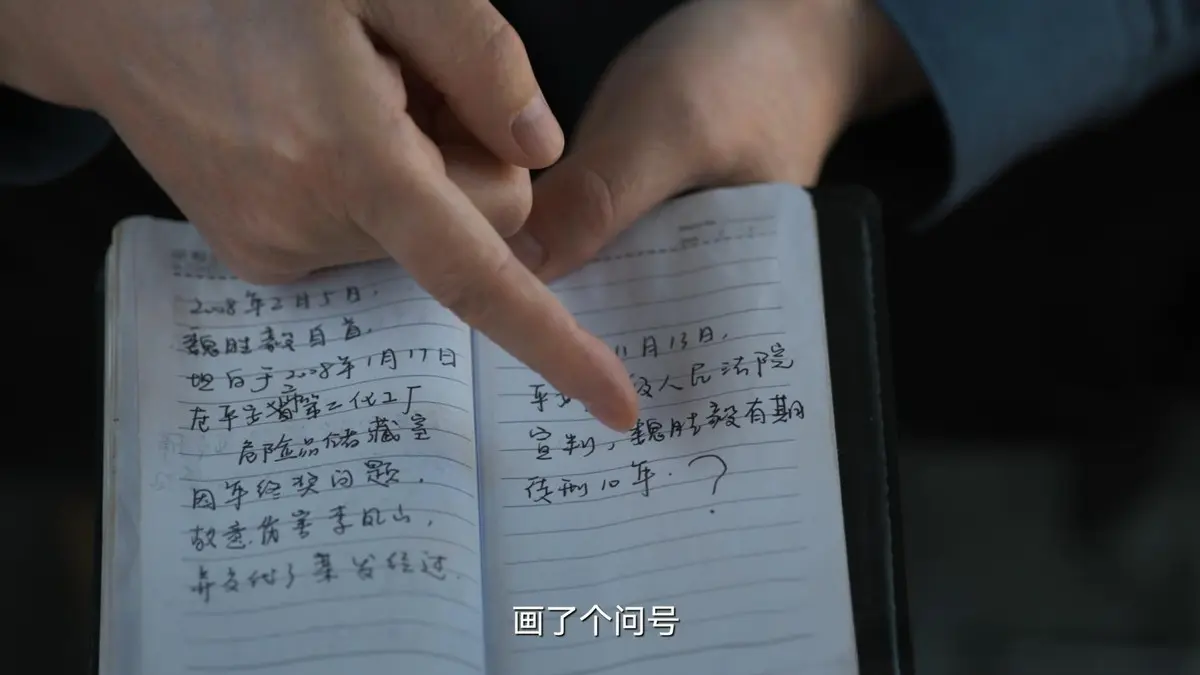 2008年2月5日,
魏胜毅自首,
坦白于2008年1月17日
在平宏市第二化工厂
危险品储藏室
因年终奖问题,
故意伤害李凤山,
并交代了案发经过.
11月13日,
平 级人民法院
宣判,魏胜毅有期
徒刑10年.?
画了个问号